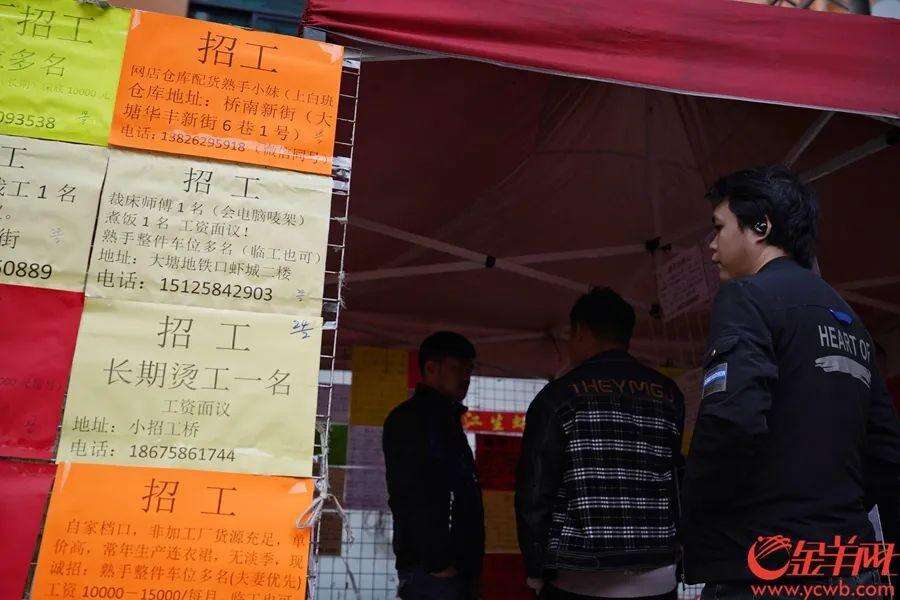 招工
多名
10000元
093538
招 工
网店仓库配货熟手小妹（上白班
仓库地址：桥南新街（大
塘华丰新街6巷1号）
电话：13826295918（微信同号）
工
工1名
街
50889
招 工
裁床师傅1名（会电脑唛架）
煮饭1名 工资面议！
熟手整件车位多名（临工也可）
地址：大塘地铁口虾城二楼
电话：15125842903
招 工
24/2
长期烫工一名
工资面议
地址：小招工桥
电话：18675861744
招 工
自家档口，非加工厂货源充足，单
价高，常年生产连衣裙，无淡季，现
诚招：熟手整件车位多名(夫妻优先)
工资10000－15000/每月，临工也可
THEYMG
HEART OF
金羊网
www.ycwb.com